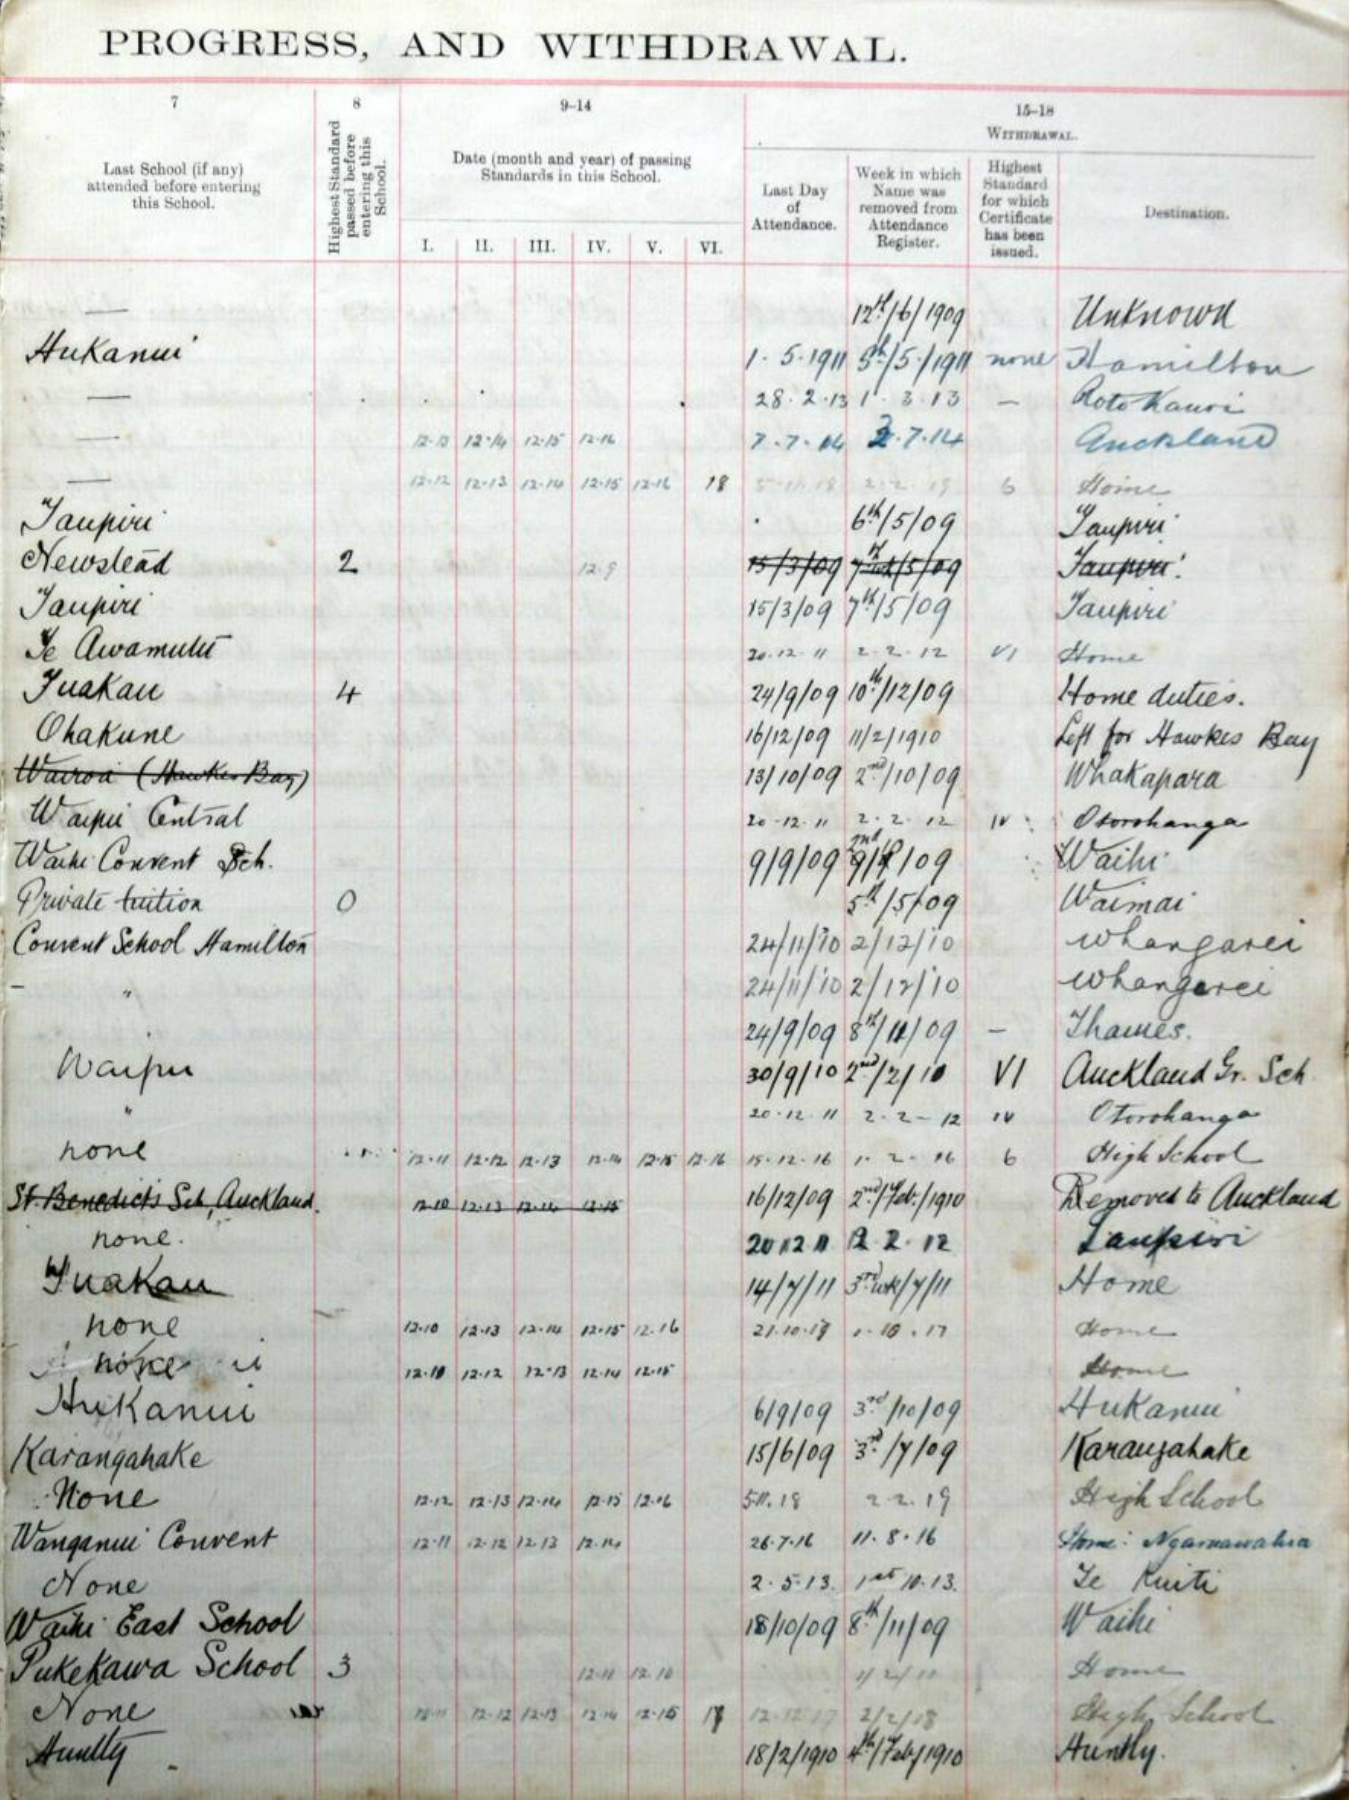 PROGRESS, AND WITHDRAWAL.
7 8 9–14 15–18
Last School (if any) attended before entering this School.
Highest Standard passed before entering this School.
Date (month and year) of passing Standards in this School.
WITHDRAWAL.
Last Day of Attendance.
Week in which Name was removed from Attendance Register.
Highest Standard for which Certificate has been issued.
Destination.
I. II. III. IV. V. VI.
— 12th/6/1909 Unknown
Hukanui 1.5.1911 5th/5/1911 none Hamilton
— 28.2.13 1.3.13 — Roto Kauri
— 12.13 12.14 12.15 12.16 7.7.14 2.7.14 Auckland
— 12.12 12.13 12.14 12.15 12.16 18 5.11.18 2.2.19 6 Home
Taupiri 6th/5/09 Taupiri
Newstead 2 12.9 15/3/09 Taupiri
Taupiri 15/3/09 7th/5/09 Taupiri
Te Awamutu 20.12.11 2.2.12 VI Home
Tuakau 4 24/9/09 10th/12/09 Home duties.
Ohakune 16/12/09 11/2/1910 Left for Hawkes Bay
Wairoa (Hawkes Bay) 13/10/09 2nd/10/09 Whakapara
Waipu Central 20.12.11 2.2.12 IV Otorohanga
Waihi Convent Sch. 9/9/09 Waihi
Private tuition 0 5th/5/09 Waimai
Convent School Hamilton 24/11/10 2/12/10 Whangarei
– " 24/11/10 2/12/10 Whangarei
24/9/09 — Thames.
Waipu 30/9/10 2nd/2/10 VI Auckland Gr. Sch
" 20.12.11 2-2-12 IV Otorohanga
none 12.11 12.12 12.13 12.14 12.15 12.16 15.12.16 6 High School
St. Benedict's Sch, Auckland. 12.10 12.13 12.14 12.15 16/12/09 2nd/Feb./1910 Removed to Auckland
none. 20 12 11 2 2 12 Taupiri
Tuakau 14/7/11 3rd wk/7/11 Home
none 12.10 12.13 12.14 12.15 12.16 21.10.17 1.10.17 Home
none 12.10 12.12 12.13 12.14 12.15 Home
Hukanui 6/9/09 3rd/10/09 Hukanui
Karangahake 15/6/09 3rd/7/09 Karangahake
None 12.12 12.13 12.14 12.15 12.16 5.11.18 2 2.19 High School
Wanganui Convent 12.11 12.12 12.13 12.14 26.7.16 11.8.16 Home: Ngaruawahia
None 2.5.13. 1st 10.13. Te Kuiti
Waihi East School 18/10/09 8th/11/09 Waihi
Pukekawa School 3 12.11 12.10 Home
None 12.11 12.12 12.13 12.14 12.15 12.12.17 2/2/18 High School
Huntly 18/2/1910 4th/Feb/1910 Huntly.